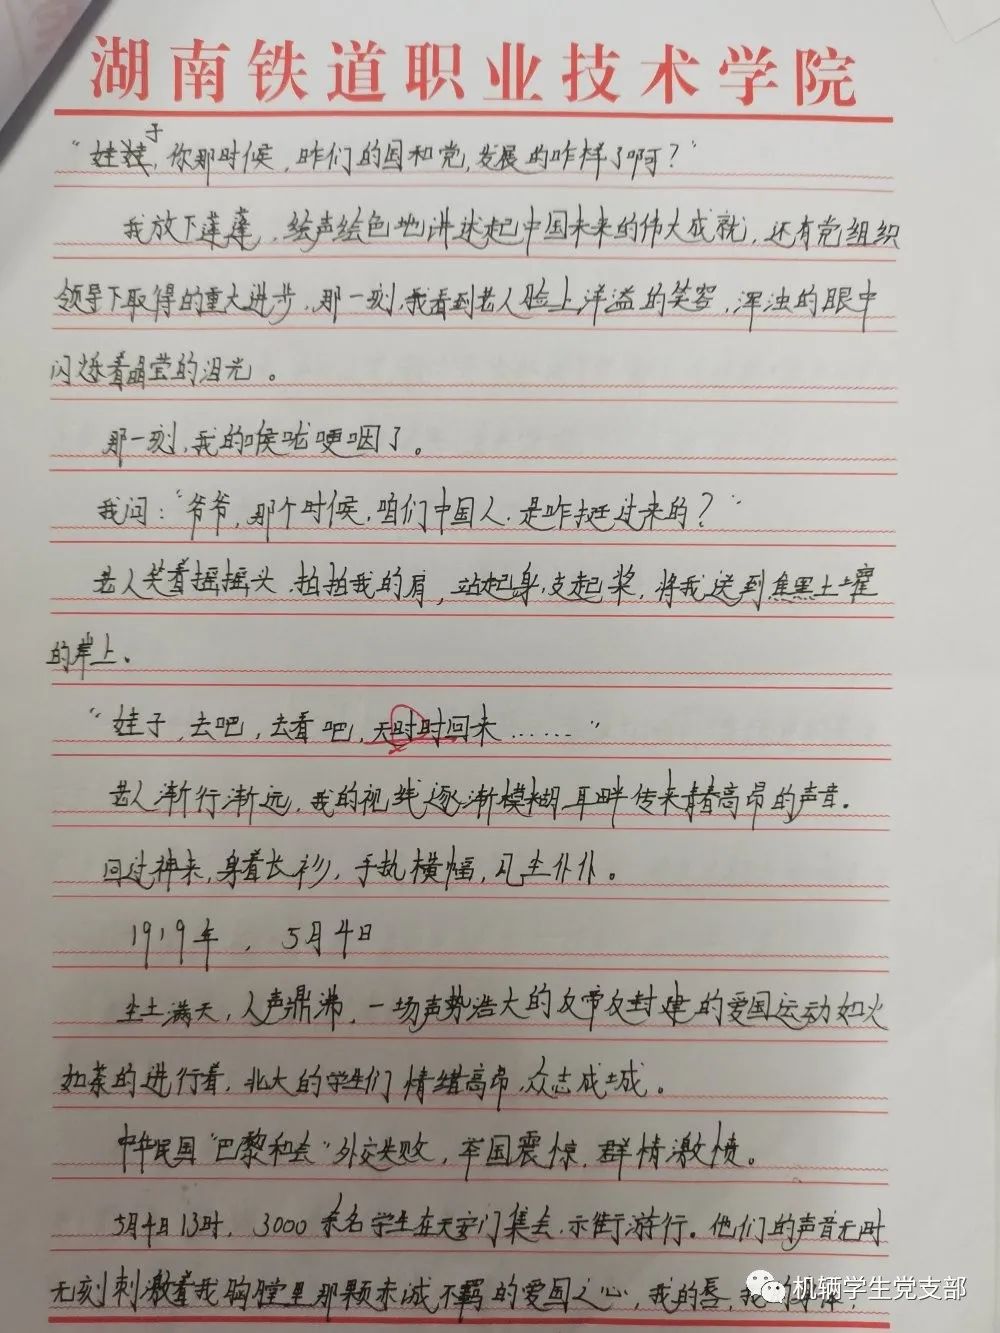 湖南铁道职业技术学院
“娃子,你那时候,咋们的国和党,发展的咋样了啊?”
我放下莲蓬,绘声绘色地讲述起中国未来的伟大成就,还有党组织
领导下取得的重大进步,那一刻,我看到老人脸上洋溢的笑容,浑浊的眼中
闪烁着晶莹的泪光。
那一刻,我的喉咙哽咽了。
我问:“爷爷,那个时候,咱们中国人,是咋挺过来的?”
老人笑着摇摇头,拍拍我的肩,站起身,支起桨,将我送到焦黑土壤
的岸上、
“娃子,去吧,去看吧,天时时回来……”
老人渐行渐远,我的视线逐渐模糊,耳畔传来青春高昂的声音。
回过神来,身着长衫,手执横幅,风尘仆仆。
1919年,5月4日
尘土满天,人声鼎沸,一场声势浩大的反帝反封建的爱国运动如火
如荼的进行着,北大的学生们情绪高昂,众志成城。
中华民国“巴黎和会”外交失败,举国震惊,群情激愤。
5月4日13时,3000余名学生在天安门集会,示街游行。他们的声音无时
无刻刺激着我胸膛里那颗赤诚不羁的爱国之心,我的唇,我的身体,
机辆学生党支部